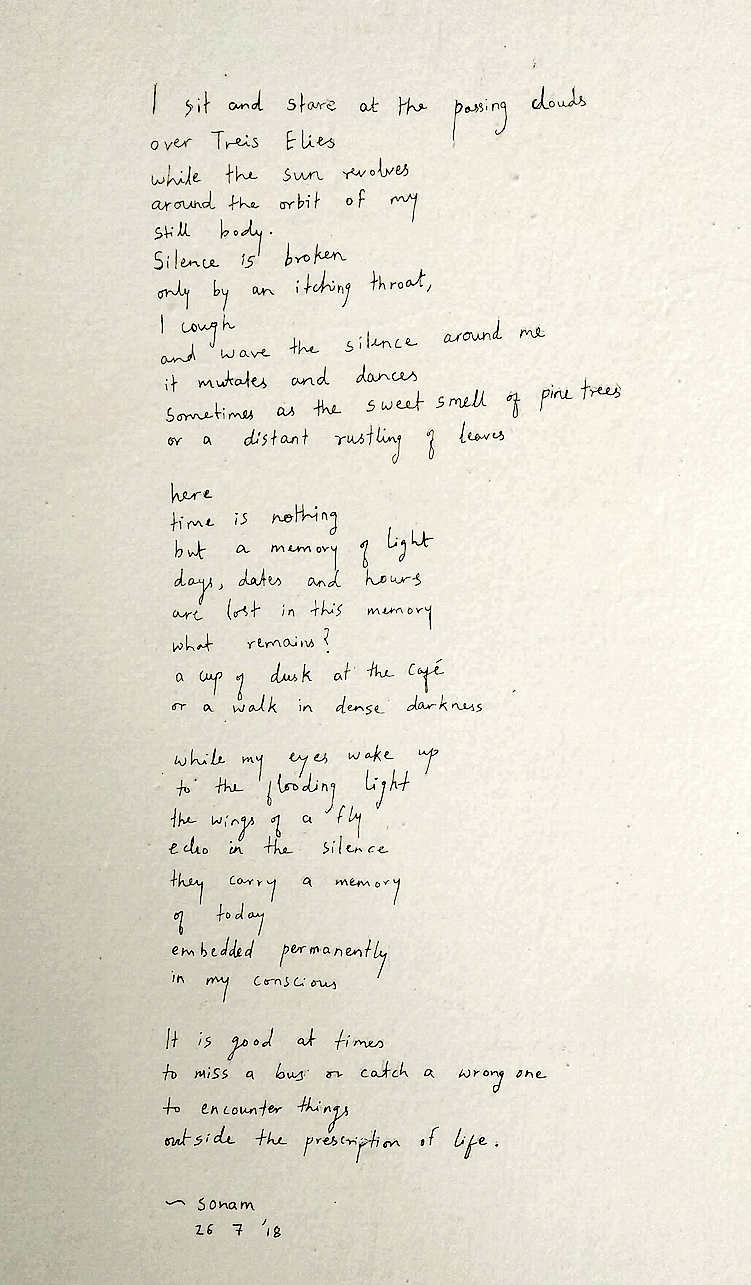 I sit and stare at the passing clouds
over Treis Elies
while the sun revolves
around the orbit of my
still body.
Silence is broken
only by an itching throat,
I cough
and wave the silence around me
it mutates and dances
sometimes as the sweet smell of pine trees
or a distant rustling of leaves
here
time is nothing
but a memory of light
days, dates and hours
are lost in this memory
what remains?
a cup of dusk at the café
or a walk in dense darkness
while my eyes wake up
to the flooding light
the wings of a fly
echo in the silence
they carry a memory
of today
embedded permanently
in my conscious
It is good at times
to miss a bus or catch a wrong one
to encounter things
outside the prescription of life.
~ sonam
26 7 '18